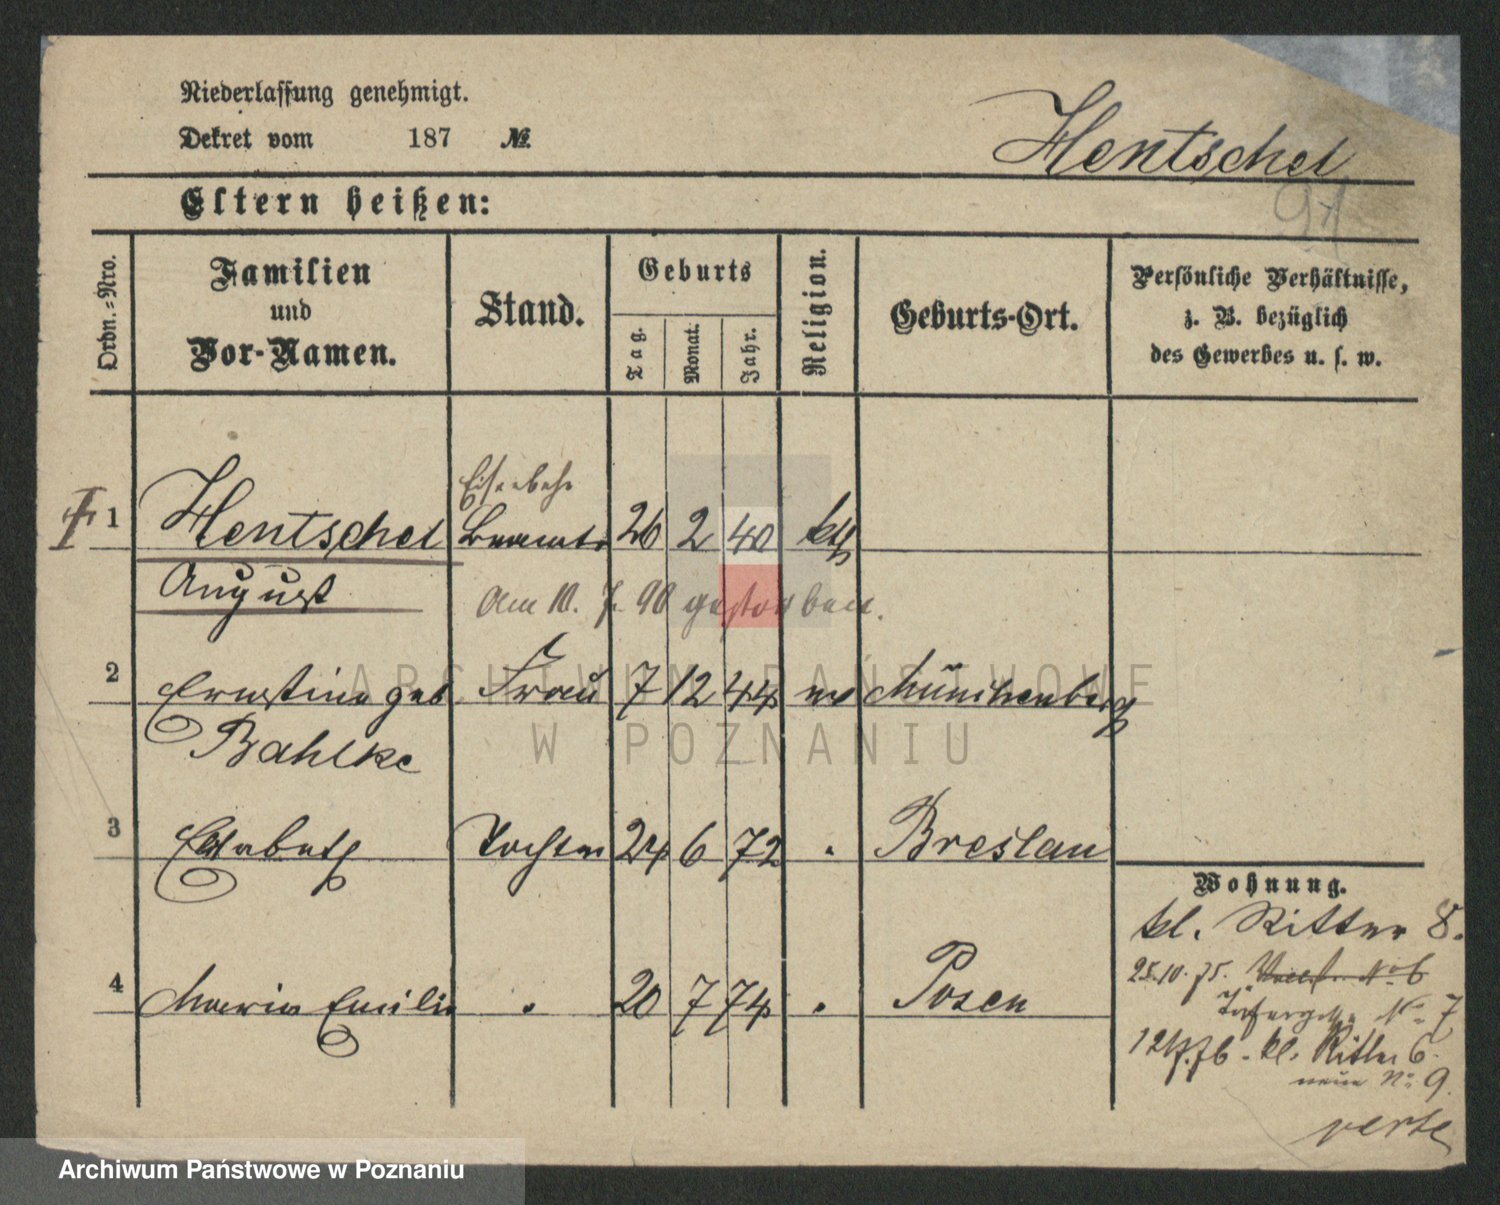 Niederlassung genehmigt.
Dekret vom 187 №
Hentschel
91
Eltern heißen:
Ordn.-Nro.
Familien
und
Vor-Namen.
Stand.
Geburts
Tag.
Monat.
Jahr.
Religion.
Geburts-Ort.
Persönliche Verhältnisse,
z. B. bezüglich
des Gewerbes u. s. w.
Eisenbahn
1 Hentschel Beamte 26 2 40 kth
August
Am 10. 7. 90 gestorben.
2 Ernstine geb Frau 7 12 44 ev Münchenberg
Bahlke
3 Elisabeth Tochter 24 6 72 " Breslau
4 Maria Emilie " 20 7 74 " Posen
Wohnung.
kl. Ritter 8.
25.10.75. No 6
No 7
12/7.76 - kl. Ritter 6.
neue No 9.
verte
ARCHIWUM PAŃSTWOWE
W POZNANIU
Archiwum Państwowe w Poznaniu